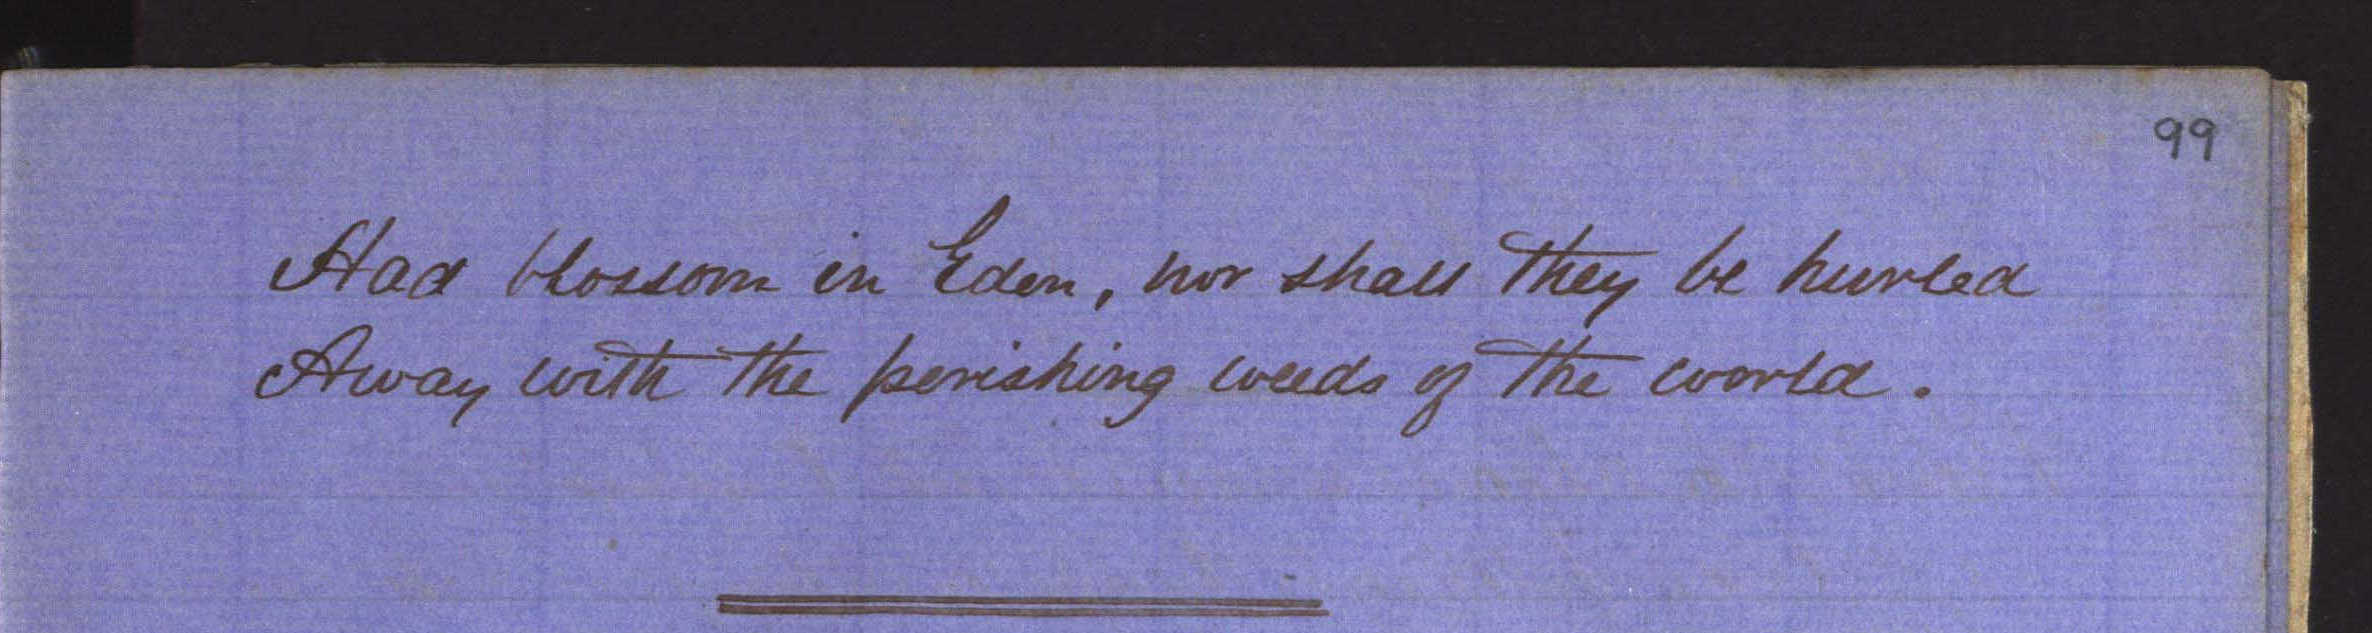 99
Had blossom in Eden, nor shall they be hurled
Away with the perishing weeds of the world.